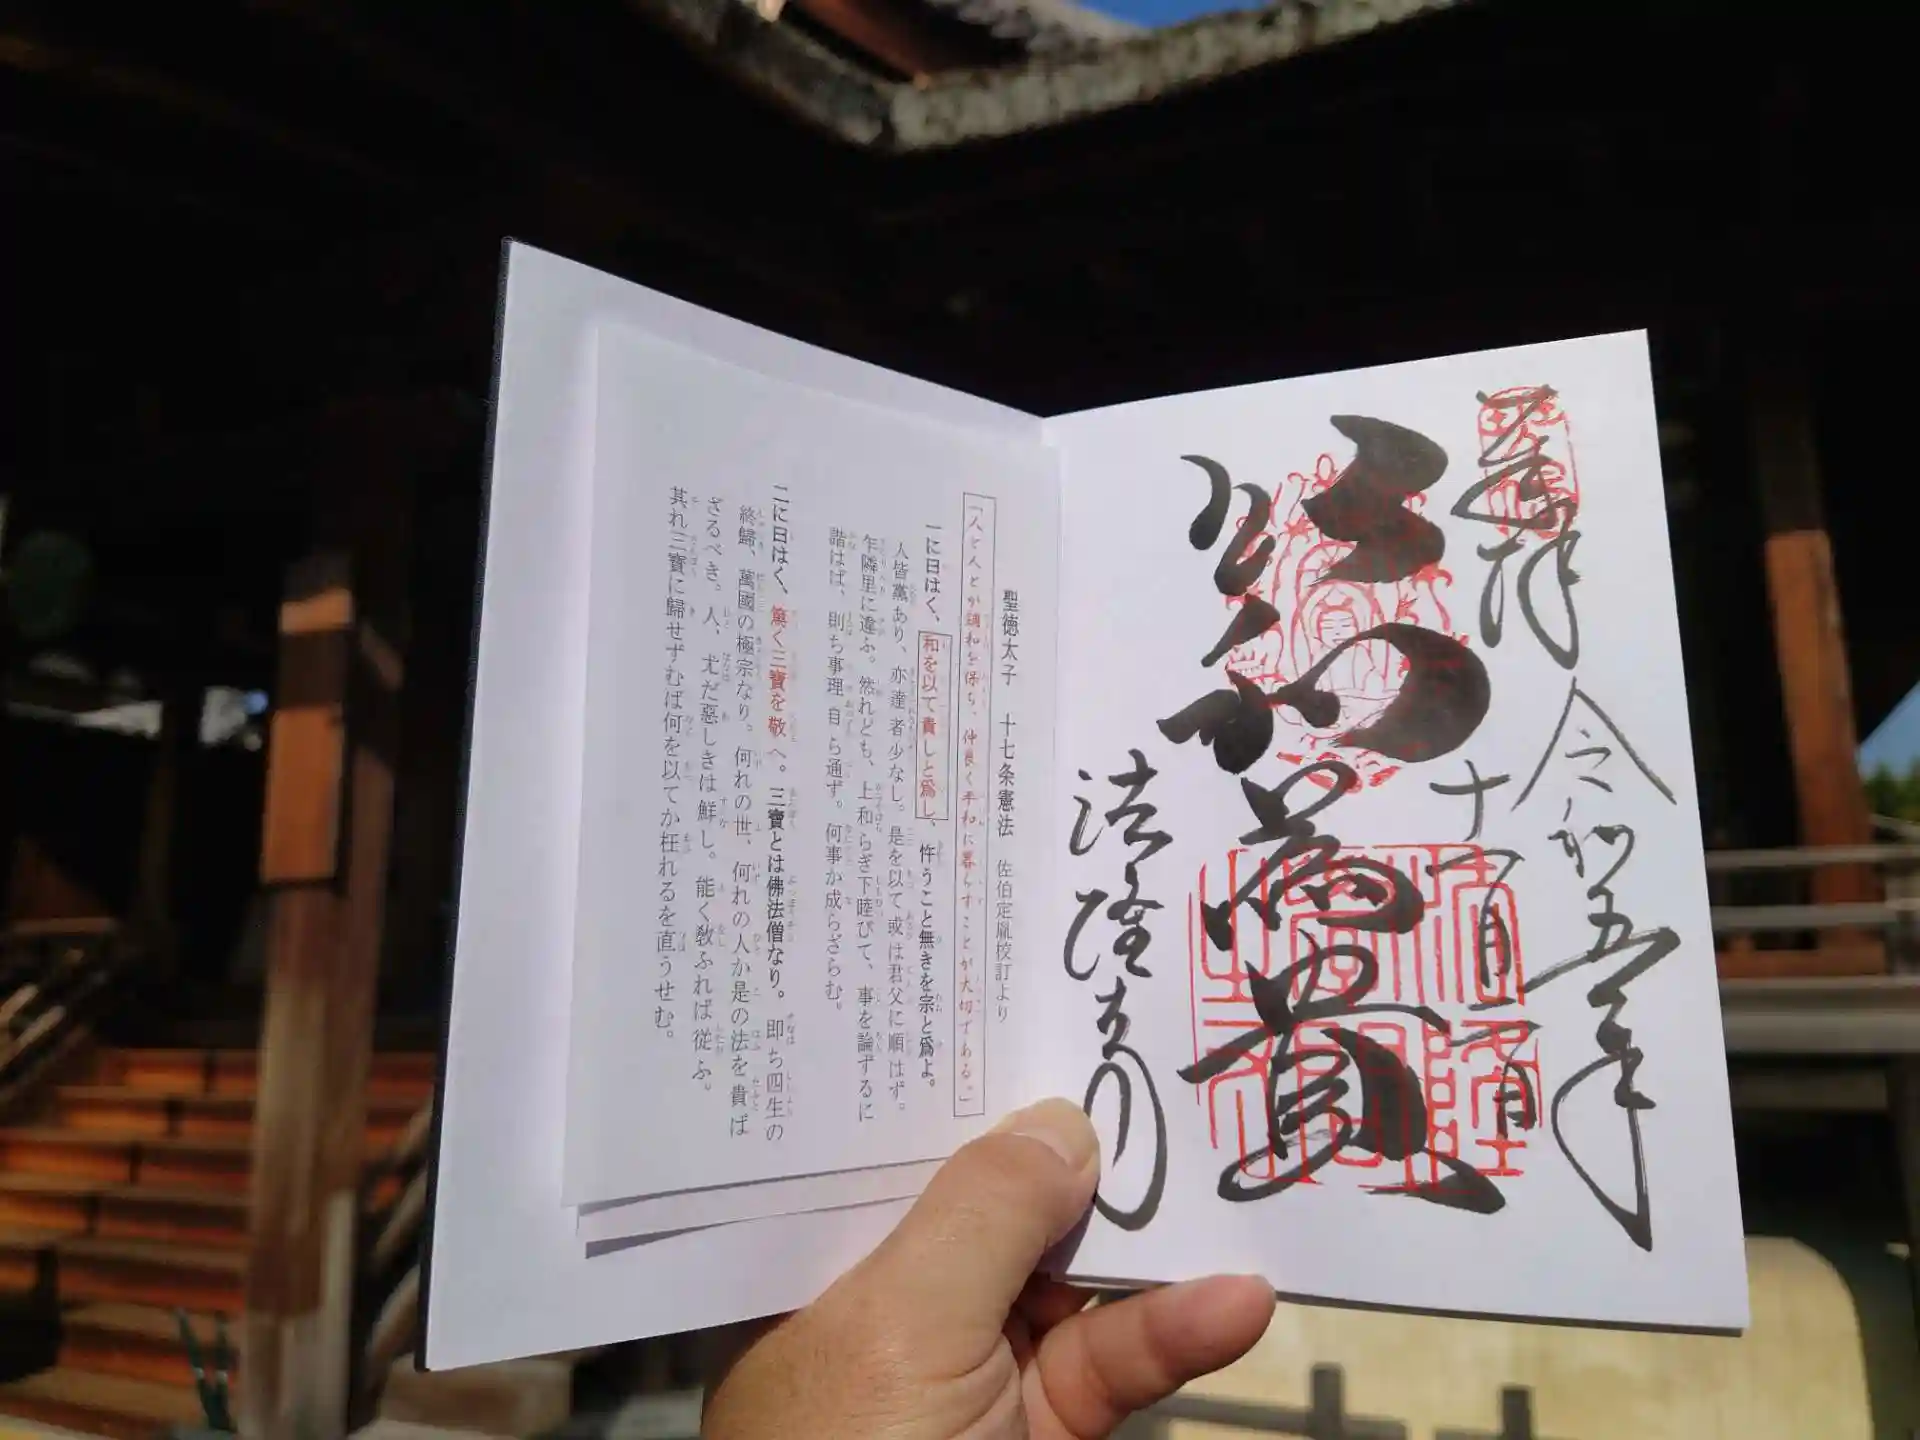 奉拝
令和五年
十一月一日
以和為貴
法隆寺
聖徳太子　十七条憲法　佐伯定胤校訂より
「人と人とが調和を保ち、仲良く平和に暮らすことが大切である。」
一に曰はく、和を以て貴しと爲し、忤うこと無きを宗と爲よ。
人皆黨あり、亦達者少なし。是を以て或は君父に順はず。
乍隣里に違ふ。然れども、上和らぎ下睦びて、事を論ずるに
諧はば、則ち事理自ら通ず。何事か成らざらむ。
二に曰はく、篤く三寶を敬へ。三寶とは佛法僧なり。即ち四生の
終歸、萬國の極宗なり。何れの世、何れの人か是の法を貴ば
ざるべき。人、尤だ惡しきは鮮し。能く敎ふれば從ふ。
其れ三寶に歸せずむば何を以てか枉れるを直うせむ。